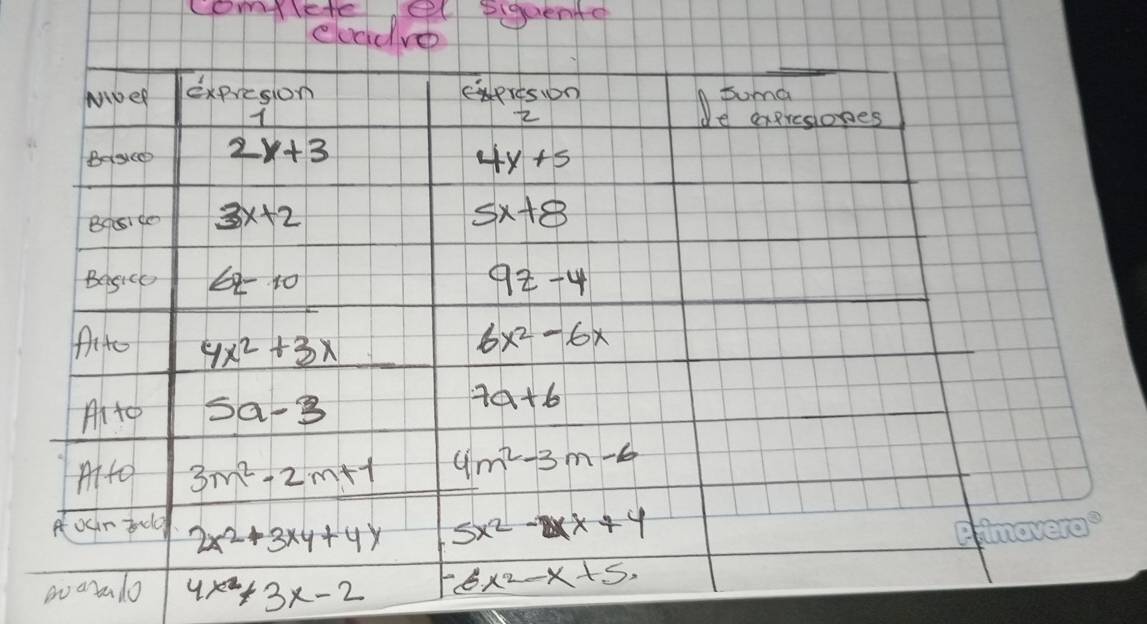 complete el siguente
cuadro
Nivel expresion 1 expresion 2 Suma de expresiones
Basico 2y+3 4y+5
Basico 3x+2 5x+8
Basico 6z-10 9z-4
Alto 4x²+3x 6x²-6x
Alto 5a-3 7a+6
Alto 3m²-2m+1 4m²-3m-6
2x²+3xy+4y 5x² x+4
4x²+3x-2 -6x²-x+5.
Primavera®